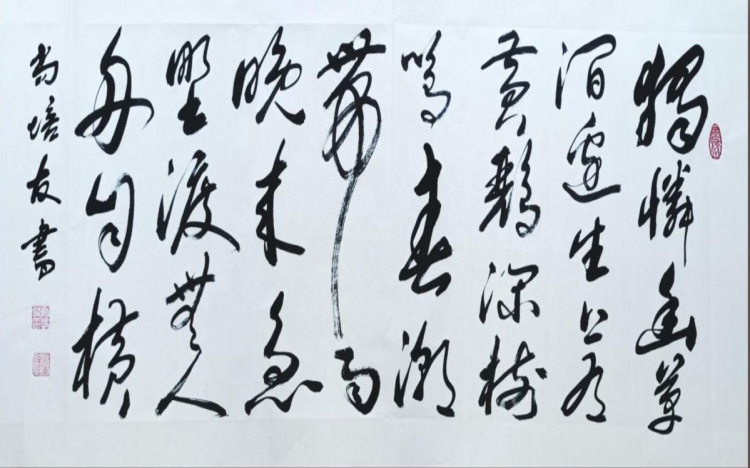 獨憐幽草
澗邊生上有
黄鸝深樹
鳴春潮
帶雨
晚来急
野渡無人
舟自横
尚培友書